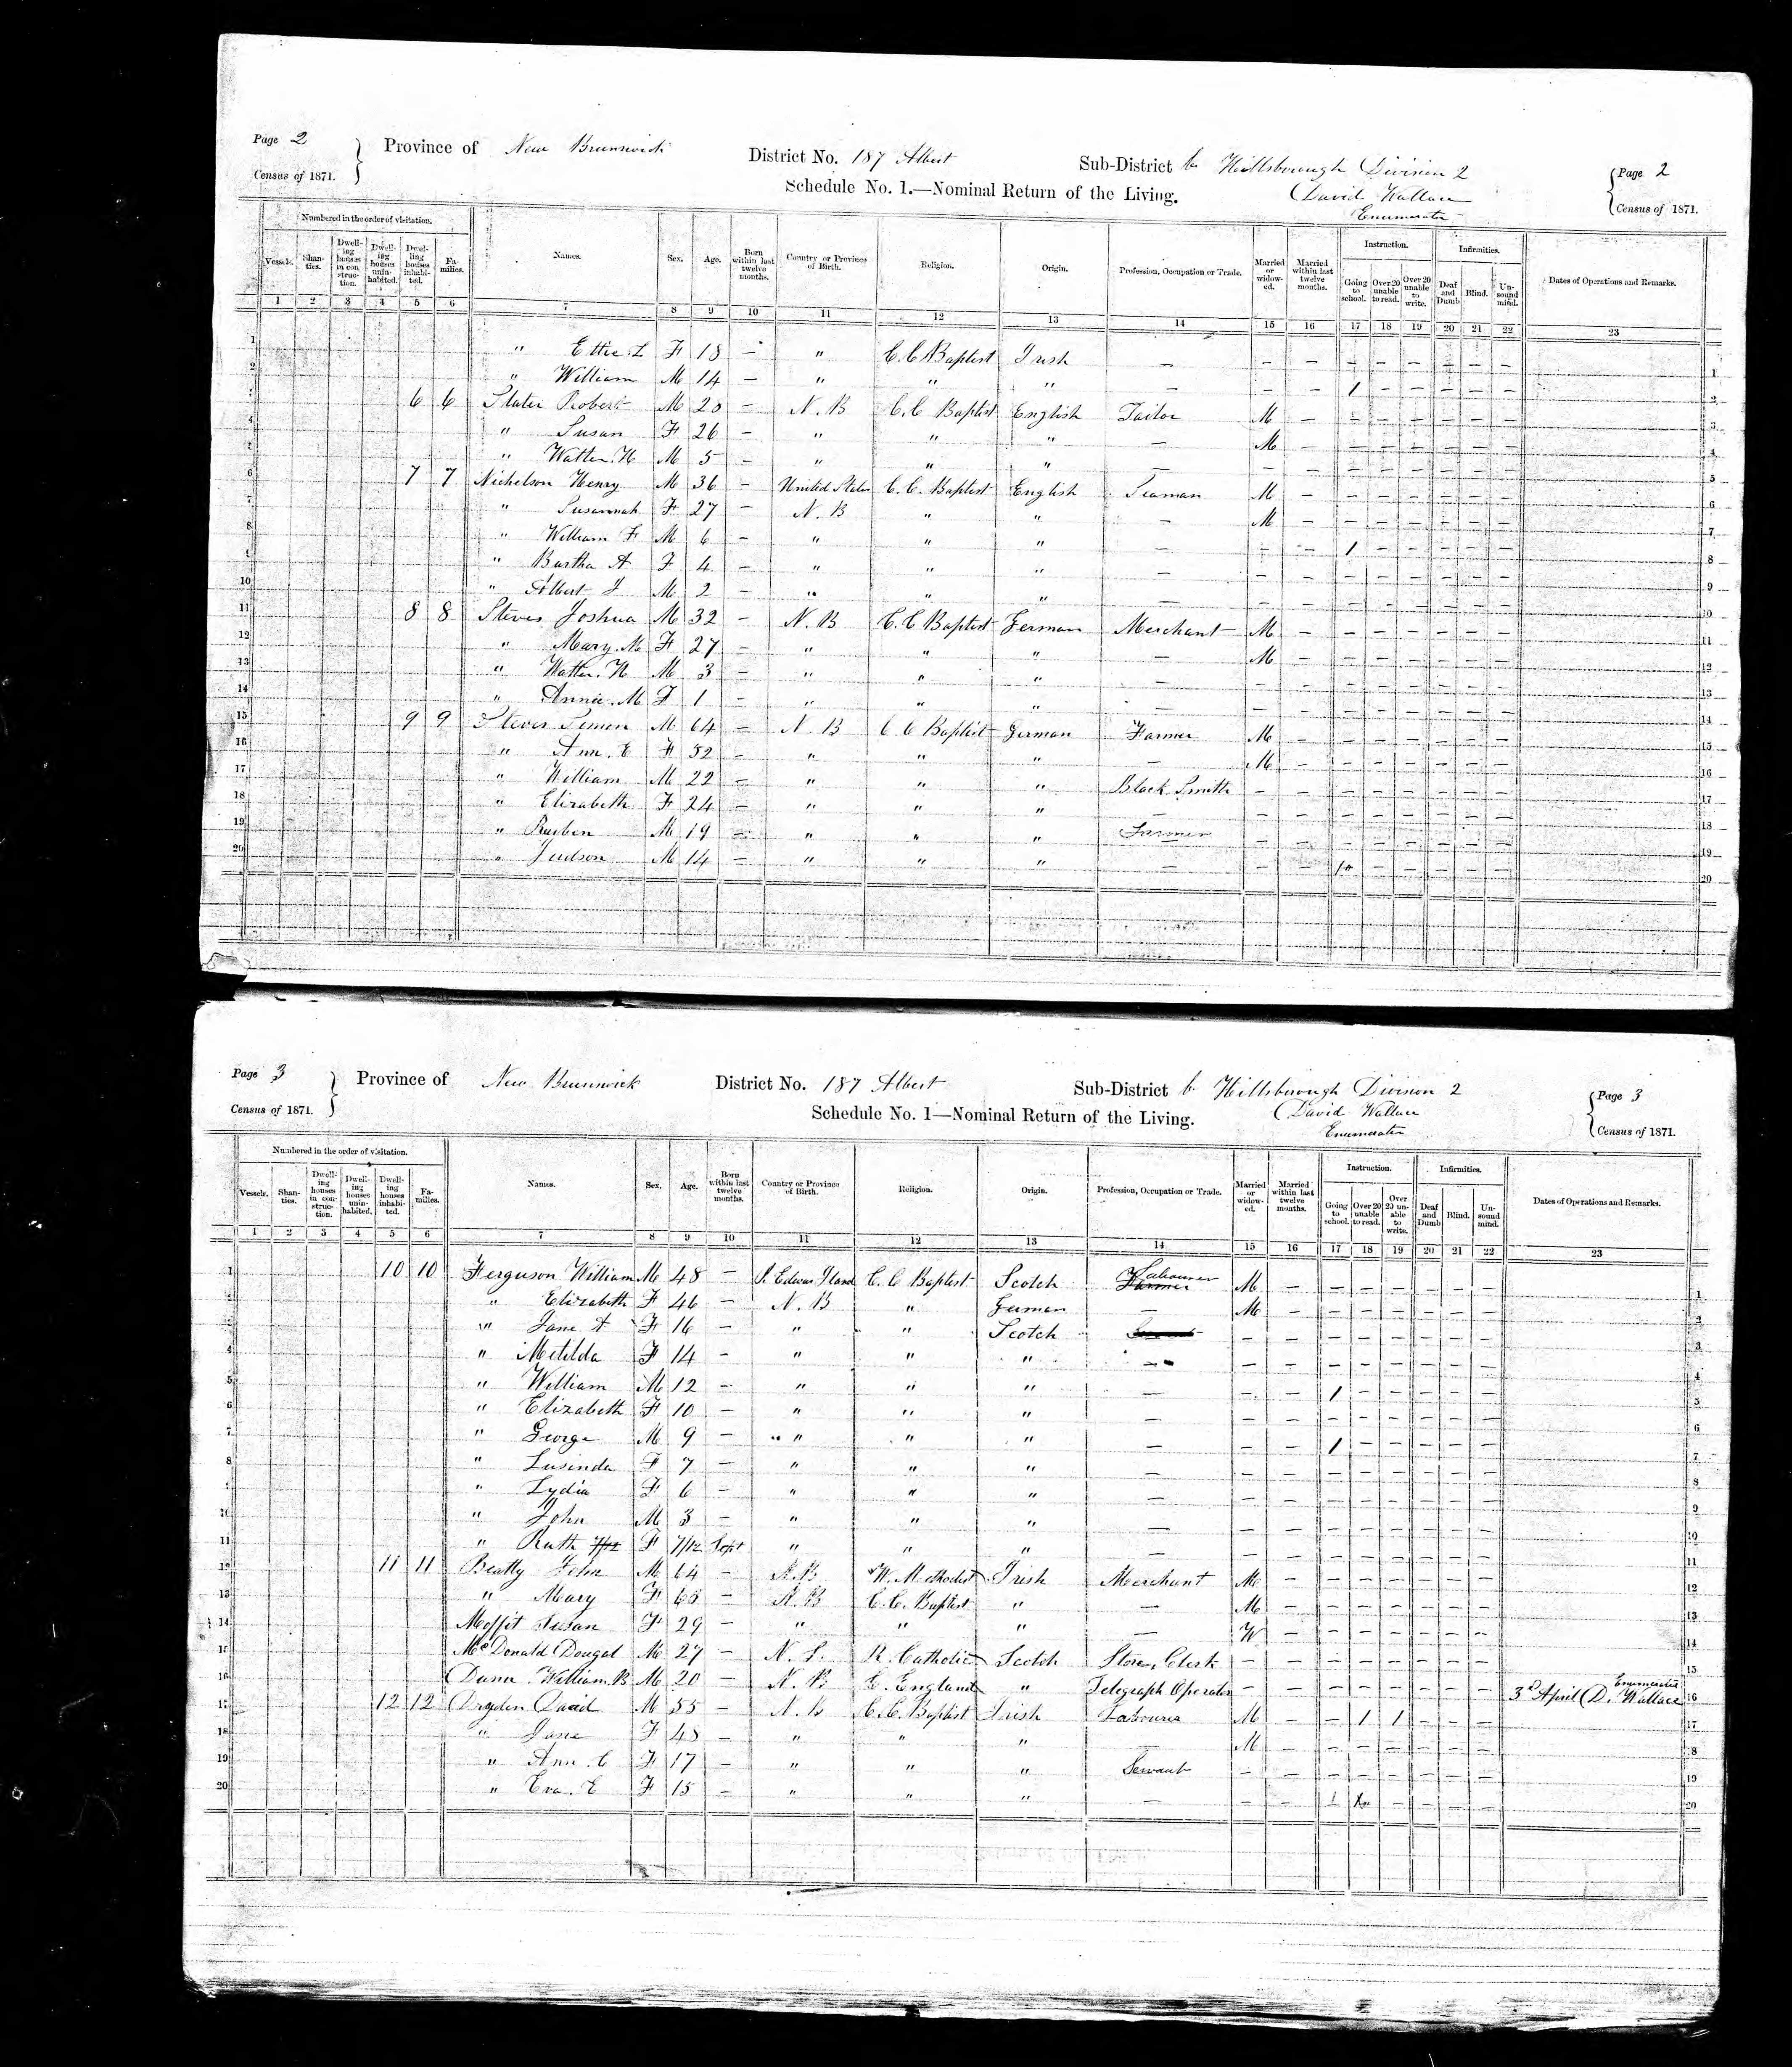 Page 2
Census of 1871.
Province of New Brunswick
District No. 187 Albert
Sub-District b Hillsborough Division 2
Page 2
Census of 1871.
Schedule No. 1.—Nominal Return of the Living.
David Wallace
Enumerator
Numbered in the order of visitation.
Vessels. Shan-ties. Dwell-ing houses in con-struc-tion. Dwell-ing houses unin-habited. Dwel-ling houses inhabi-ted. Fa-milies. Names. Sex. Age. Born within last twelve months. Country or Province of Birth. Religion. Origin. Profession, Occupation or Trade. Married or widow-ed. Married within last twelve months. Instruction. Going to school. Over 20 unable to read. Over 20 unable to write. Infirmities. Deaf and Dumb. Blind. Un-sound mind. Dates of Operations and Remarks.
1 2 3 4 5 6 7 8 9 10 11 12 13 14 15 16 17 18 19 20 21 22 23
1 " Ettie L F 18 — " C. C Baptist Irish — — — — — — — — — 1
2 " William M 14 — " " " — — — 1 — — — — — 2
3 6 6 Slater Robert M 20 — N. B C. C Baptist English Tailor M — — — — — — — 3
4 " Susan F 26 — " " " — M — — — — — — — 4
5 " Walter. H M 5 — " " " — — — — — — — — — 5
6 7 7 Nickelson Henry M 36 — United States C. C. Baptist English Seaman M — — — — — — — 6
7 " Susannah F 27 — N. B " " — M — — — — — — — 7
8 " William F M 6 — " " " — — — 1 — — — — — 8
9 " Burtha A F 4 — " " " — — — — — — — — — 9
10 " Albert J M 2 — " " " — — — — — — — — — 10
11 8 8 Steves Joshua M 32 — N. B C. C Baptist German Merchant M — — — — — — — 11
12 " Mary. M F 27 — " " " — M — — — — — — — 12
13 " Walter. H M 3 — " " " — — — — — — — — — 13
14 " Annie. M F 1 — " " " — — — — — — — — — 14
15 9 9 Steves Simon M 64 — N. B C C Baptist German Farmer M — — — — — — — 15
16 " Ann. E F 52 — " " " — M — — — — — — — 16
17 " William M 22 — " " " Black Smith — — — — — — — — 17
18 " Elizabeth F 24 — " " " — — — — — — — — — 18
19 " Rueben M 19 — " " " Farmer — — — — — — — — 19
20 " Judson M 14 — " " " — — — 1 — — — — — 20
Page 3
Census of 1871.
Province of New Brunswick
District No. 187 Albert
Sub-District b Hillsborough Division 2
Page 3
Census of 1871.
Schedule No. 1—Nominal Return of the Living.
David Wallace
Enumerator
Numbered in the order of visitation.
Vessels. Shan-ties. Dwell-ing houses in con-struc-tion. Dwell-ing houses unin-habited. Dwell-ing houses inhabi-ted. Fa-milies. Names. Sex. Age. Born within last twelve months. Country or Province of Birth. Religion. Origin. Profession, Occupation or Trade. Married or widow-ed. Married within last twelve months. Instruction. Going to school. Over 20 unable to read. Over 20 un-able to write. Infirmities. Deaf and Dumb. Blind. Un-sound mind. Dates of Operations and Remarks.
1 2 3 4 5 6 7 8 9 10 11 12 13 14 15 16 17 18 19 20 21 22 23
1 10 10 Ferguson William M 48 — P. Edwar Iland C. C Baptist Scotch Farmer Labourer M — — — — — — — 1
2 " Elizabeth F 46 — N. B " German — M — — — — — — — 2
3 " Jane A F 16 — " " Scotch — — — — — — — — 3
4 " Metilda F 14 — " " " — — — — — — — — — 4
5 " William M 12 — " " " — — — 1 — — — — — 5
6 " Elizabeth F 10 — " " " — — — — — — — — — 6
7 " George M 9 — " " " — — — 1 — — — — — 7
8 " Lusinda F 7 — " " " — — — — — — — — — 8
9 " Lydia F 6 — " " " — — — — — — — — — 9
10 " John M 3 — " " " — — — — — — — — — 10
11 " Ruth 7/12 F 7/12 Sept " " " — — — — — — — — — 11
12 11 11 Beatty John M 64 — N. B W. Methodist Irish Merchant M — — — — — — — 12
13 " Mary F 63 — N. B C. C. Baptist " — M — — — — — — — 13
14 Moffit Susan F 29 — " " " — W — — — — — — — 14
15 McDonald Dougal M 27 — N. S. R. Catholic Scotch Store Clerk — — — — — — — — 15
16 Dunn William. B M 20 — N. B E. England " Telegraph Operator — — — — — — — — 3d April D. Wallace Enumerator 16
17 12 12 Dryden David M 55 — N. B C. C. Baptist Irish Labourer M — — 1 1 — — — 17
18 " Jane F 48 — " " " — M — — — — — — — 18
19 " Ann. C F 17 — " " " Servant — — — — — — — — 19
20 " Eva. E F 15 — " " " — — — 1 — — — — 20